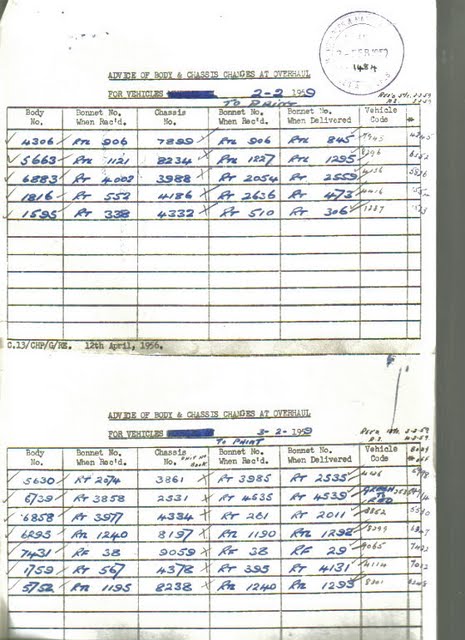 1484
ADVICE OF BODY & CHASSIS CHANGES AT OVERHAUL
FOR VEHICLES 2-2 1959
TO PAINT
Body No. Bonnet No. When Rec'd. Chassis No. Bonnet No. When Rec'd. Bonnet No. When Delivered Vehicle Code
4306 RTL 906 7889 RTL 906 RTL 845 7943
5663 RTL 1121 8234 RTL 1227 RTL 1295 8296
6883 RT 4002 3988 RT 2054 RT 2559 4136
1816 RT 552 4186 RT 2636 RT 473 4416
1595 RT 338 4332 RT 510 RT 306 1237
C.13/CHP/G/RE. 12th April, 1956.
ADVICE OF BODY & CHASSIS CHANGES AT OVERHAUL
FOR VEHICLES 3-2 1959
TO PAINT
Body No. Bonnet No. When Rec'd. Chassis No. Bonnet No. When Rec'd. Bonnet No. When Delivered Vehicle Code
5630 RT 2074 3861 RT 3985 RT 2535
6739 RT 3858 2531 RT 4635 RT 4539 GREEN TO RED
6858 RT 3977 4334 RT 281 RT 2011
6295 RTL 1240 8197 RTL 1190 RTL 1292 8293
7431 RF 38 9059 RF 38 RF 29 9065
1759 RT 567 4378 RT 395 RT 4131 4114
5752 RTL 1195 8238 RTL 1240 RTL 1293 8301